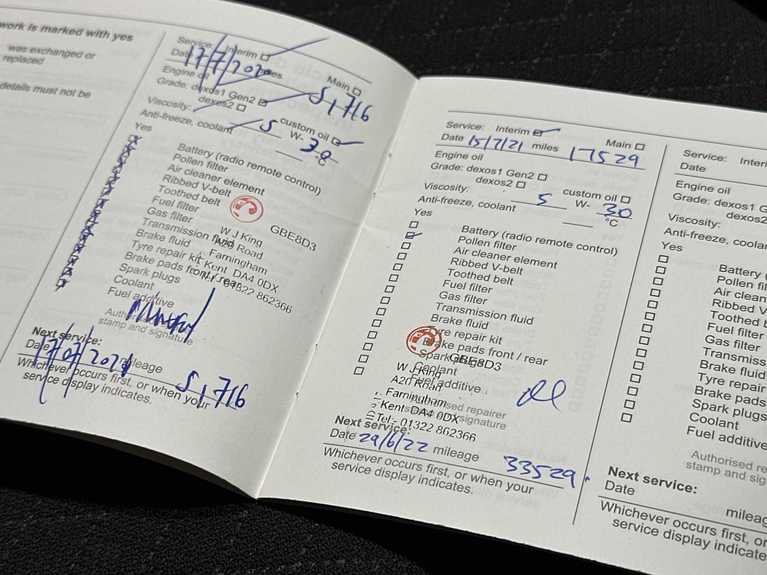 work is marked with yes
was exchanged or
replaced
details must not be
Service: Interim
Main
Date 17/7/2020 miles
51,716
Engine oil
Grade: dexos1 Gen2
dexos2
custom oil
Viscosity: 5 W- 30
Anti-freeze, coolant °C
Yes
Battery (radio remote control)
Pollen filter
Air cleaner element
Ribbed V-belt
Toothed belt
Fuel filter
Gas filter
Transmission fluid
Brake fluid
Tyre repair kit
Brake pads front / rear
Spark plugs
Coolant
Fuel additive
GBE8D3
W J King
A20 Road
Farningham
Kent DA4 0DX
Tel:- 01322 862366
Authorised repairer
stamp and signature
Next service:
Date 17/07/2021 mileage
51,716
Whichever occurs first, or when your
service display indicates.
Service: Interim
Main
Date 15/7/21 miles 17529
Engine oil
Grade: dexos1 Gen2
dexos2
custom oil
Viscosity: 5 W- 30
Anti-freeze, coolant °C
Yes
Battery (radio remote control)
Pollen filter
Air cleaner element
Ribbed V-belt
Toothed belt
Fuel filter
Gas filter
Transmission fluid
Brake fluid
Tyre repair kit
Brake pads front / rear
Spark plugs
Coolant
Fuel additive
GBE8D3
W J King
A20 Road
Farningham
Kent DA4 0DX
Tel:- 01322 862366
Authorised repairer
stamp and signature
Next service:
Date 29/6/22 mileage 33529
Whichever occurs first, or when your
service display indicates.
Service: Interi
Date
Engine oil
Grade: dexos1
dexos2
Viscosity:
Anti-freeze, coola
Yes
Battery (
Pollen fil
Air clean
Ribbed V
Toothed
Fuel filter
Gas filter
Transmiss
Brake fluid
Tyre repair
Brake pads
Spark plugs
Coolant
Fuel additive
Authorised re
stamp and sig
Next service:
Date mileag
Whichever occurs first, or
service display indicates.